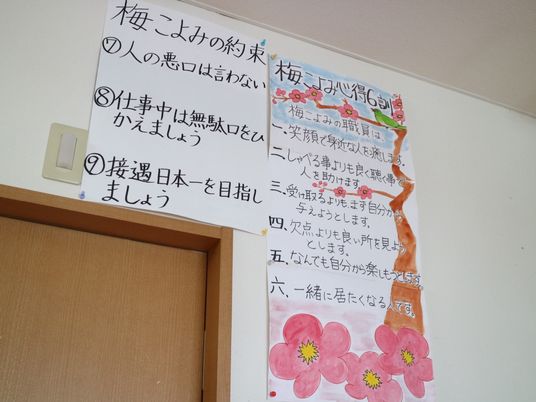 梅こよみの約束
⑦人の悪口は言わない
⑧仕事中は無駄口をひ
かえましょう
⑨接遇日本一を目指し
ましょう
梅こよみ心得6訓
梅こよみの職員は
一、笑顔で身近な人を癒します。
二、しゃべる事よりも良く聴く事で
人を助けます。
三、受け取るよりも、まず自分から
与えようとします。
四、欠点よりも良い所を見よう
とします。
五、なんでも自分から楽しもうとします。
六、一緒に居たくなる人です。